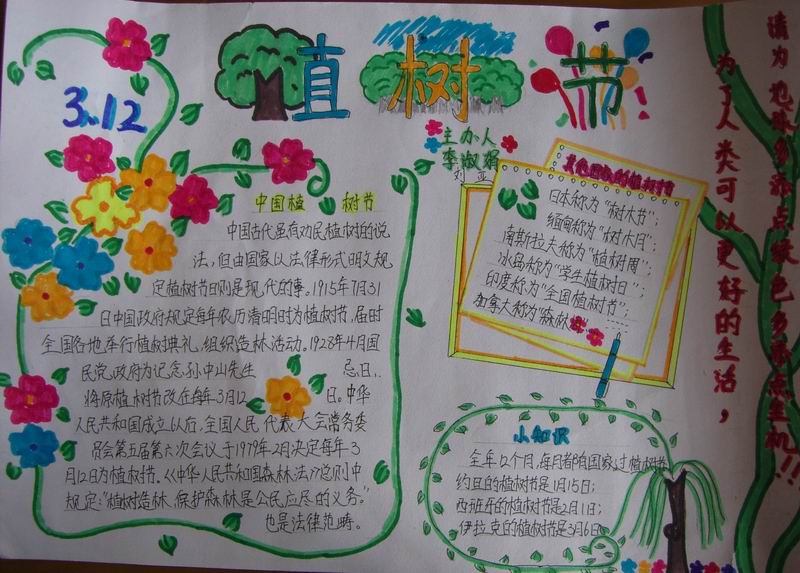 3.12
植树节
主办人
李淑娟
刘亚
中国植树节
中国古代虽有劝民植树的说
法，但由国家以法律形式明文规
定植树节日则是现代的事。1915年7月31
日中国政府规定每年农历清明时为植树节，届时
全国各地举行植树典礼，组织造林活动。1928年4月国
民党政府为记念孙中山先生 忌日，
将原植树节改在每年3月12 日。中华
人民共和国成立以后，全国人民代表大会常务委
员会第五届第六次会议于1979年2月决定每年3
月12日为植树节。《中华人民共和国森林法》总则中
规定："植树造林、保护森林是公民应尽的义务。"
也是法律范畴。
各国的植树节
日本称为"树木节"；
缅甸称为"树木月"；
南斯拉夫称为"植树周"；
冰岛称为"学生植树日"；
印度称为"全国植树节"；
加拿大称为"森林
小知识
全年12个月，每月都有国家过植树节
约旦的植树节是1月15日；
西班牙的植树节是2月1日；
伊拉克的植树节是3月6日
为了人类可以更好的生活，
请为地球多添点绿色多添点生机!!!